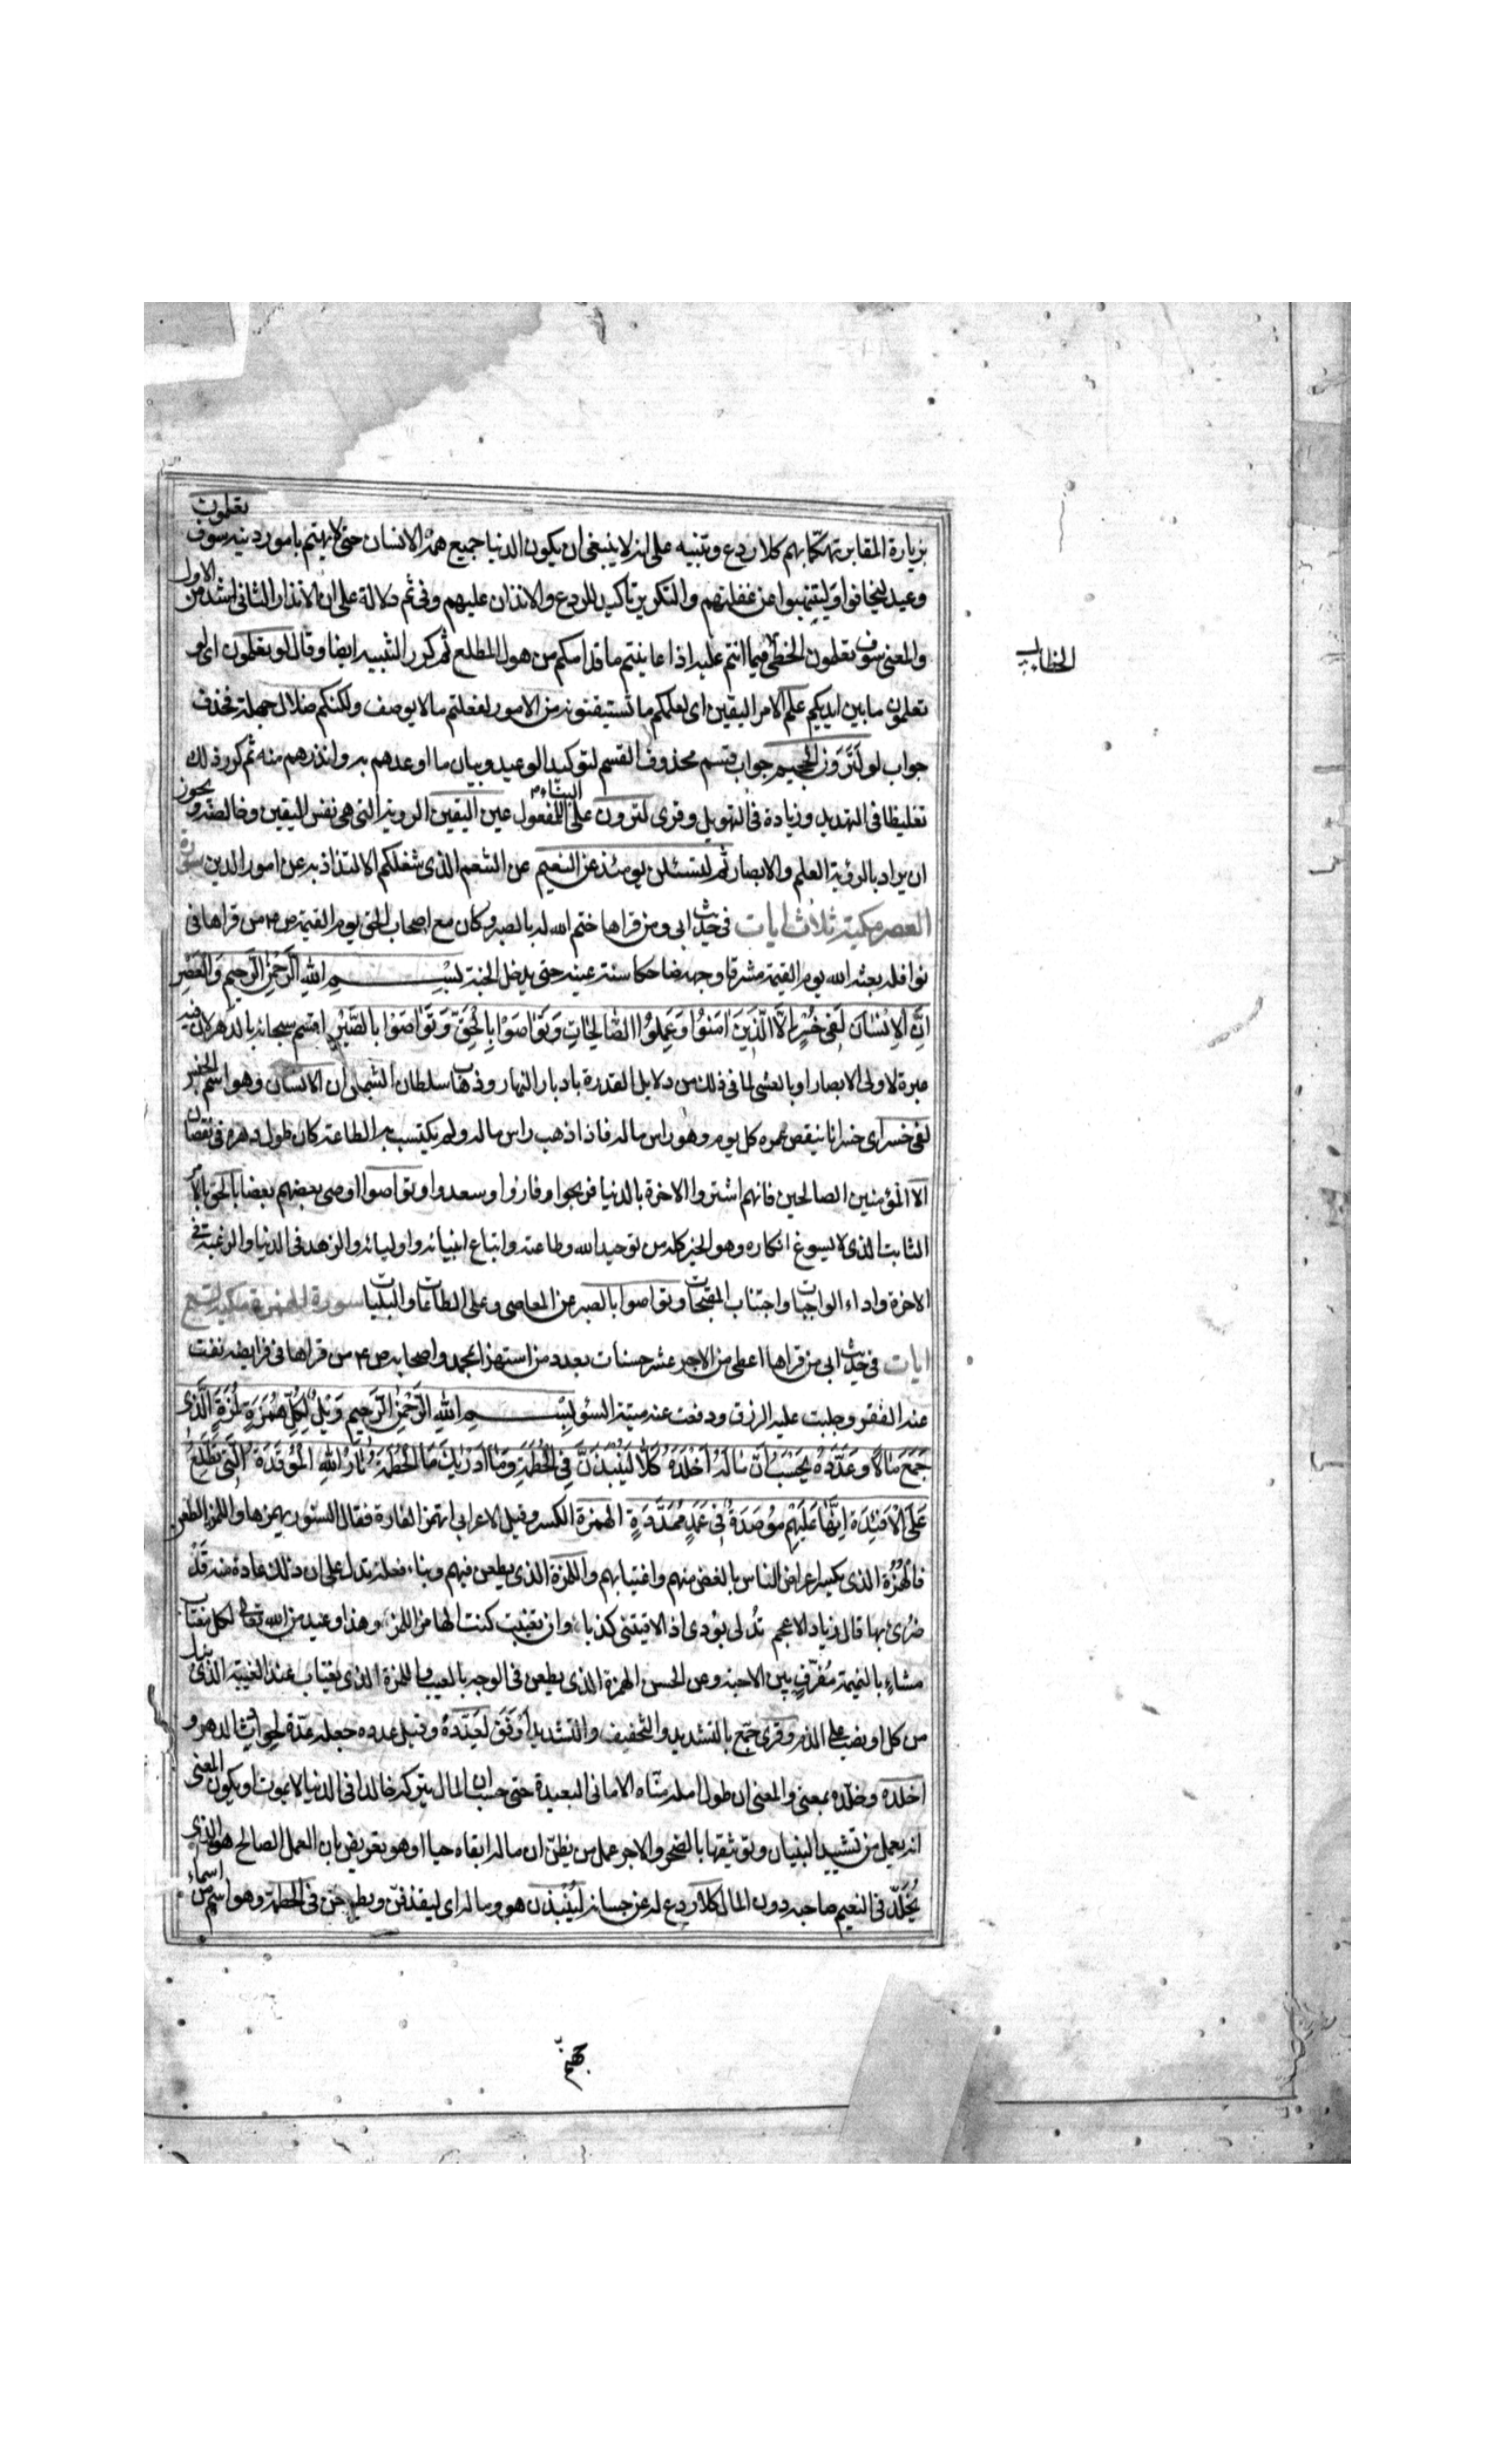 بزيارة المقابر تهكما بهم كلا ردع وتنبيه على انه لا ينبغى ان يكون الدنيا جميع همّ الانسان حتى لا يهتم بامور دينه سوف تعلمون
وعيد ليخافوا وليتنبهوا من غفلتهم والتكرير تاكيد للردع والانذار عليهم وفى ثم دلالة على ان الانذار الثانى اشد من الاول
والمعنى سوف تعلمون الخطأ فيما انتم عليه اذا عاينتم ما قدامكم من هول المطلع ثم كرر التنبيه ايضا وقال لو تعلمون اى لو
الخطاب
تعلمون ما بين ايديكم علم الامر اليقين اى لعلمكم ما تستيقنونه من الامور لفعلتم ما لا يوصف ولكنكم ضلال جهلة فحذف
جواب لو لَتَرَوُنَّ الجحيم جواب قسم محذوف القسم لتوكيد الوعيد وبيان ما اوعدهم به وانذرهم منه ثم كرر ذلك
تغليظا فى التهديد وزيادة فى التهويل وقرى لترون على البناء للمفعول عين اليقين الروية التى هى نفس اليقين وخالصته ويجوز
ان يراد بالرؤية العلم والابصار ثم لتسئلن يومئذ عن النعيم عن التنعم الذى شغلكم الالتذاذ به عن امور الدين سورة
العصر مكية ثلاث ايات فى حديث ابى ومن قراها ختم الله له بالصبر وكان مع اصحاب الحق يوم القيمة ص م من قراها فى
نوافله بعثه الله يوم القيمة مشرقا وجهه ضاحكا سنه عينه حتى يدخل الجنة بِسْمِ اللهِ الرَّحْمٰنِ الرَّحِيمِ وَالْعَصْرِ
اِنَّ الاِنْسَانَ لَفِى خُسْرٍ اِلَّا الَّذِينَ اٰمَنُوا وَعَمِلُوا الصَّالِحَاتِ وَتَوَاصَوْا بِالْحَقِّ وَتَوَاصَوْا بِالصَّبْرِ اقسم سبحانه بالدهر لان فيه
عبرة لاولى الابصار او بالعشى لما فى ذلك من دلايل القدرة بادبار النهار وذهاب سلطان الشمس ان الانسان وهو اسم الجنس
لفى خسر اى خسران ينقص عمره كل يوم وهو راس ماله فاذا ذهب راس ماله ولم يكتسب به الطاعة كان طول دهره فى نقصان
الا المؤمنين الصالحين فانهم اشتروا الاخرة بالدنيا فربحوا وفازوا وسعدوا وتواصوا اوصى بعضهم بعضا بالحق بالامر
الثابت الذى لا يسوغ انكاره وهو الخير كله من توحيد الله وطاعته واتباع انبيائه واوليائه والزهد فى الدنيا والرغبة فى
الاخرة واداء الواجبات واجتناب المقبحات وتواصوا بالصبر عن المعاصى وعلى الطاعات والبليات سورة الهمزة مكية تسع
ايات فى حديث ابى من قراها اعطى من الاجر عشر حسنات بعدد من استهزا بمحمد واصحابه ص م من قراها فى فرايضه نفت
عنه الفقر وجلبت عليه الرزق ودفعت عنه ميتة السوء بِسْمِ اللهِ الرَّحْمٰنِ الرَّحِيمِ وَيْلٌ لِكُلِّ هُمَزَةٍ لُمَزَةٍ الَّذِى
جَمَعَ مَالًا وَعَدَّدَهُ يَحْسَبُ اَنَّ مَالَهُ اَخْلَدَهُ كَلَّا لَيُنْبَذَنَّ فِى الْحُطَمَةِ وَمَا اَدْرٰيكَ مَا الْحُطَمَةُ نَارُ اللهِ الْمُوقَدَةُ الَّتِى تَطَّلِعُ
عَلَى الْاَفْئِدَةِ اِنَّهَا عَلَيْهِمْ مُؤْصَدَةٌ فِى عَمَدٍ مُمَدَّدَةٍ الهمزة الكسر وقيل لاعرابى اتهمز الفارة فقال السنور يهمزها واللمز الطعن
فالهمزة الذى يكسر اعراض الناس بالغض منهم واغتيابهم واللمزة الذى يطعن فيهم وبناء فعلة يدل على ان ذلك عادة منه قد
ضرى بها قال زياد الاعجم تدلى بودى اذا لاقيتنى كذبا وان تغيبت كنت الهامز اللمزه وهذا وعيد من الله تعالى لكل مغتاب
مشاء بالنميمة مفرق بين الاحبة وعن الحسن الهمزة الذى يطعن فى الوجه بالعيب واللمزة الذى يغتاب عند الغيبة الذى بدل
من كل او نصب على الذم وقرى جمع بالتشديد والتخفيف والتشديد اوفق لعدده وقيل عدده جعله عدة لحوادث الدهر و
اخلده وخلده بمعنى والمعنى ان طول امله منّاه الامانى البعيدة حتى حسب ان المال يتركه خالدا فى الدنيا لا يموت او يكون المعنى
انه يعمل من تشييد البنيان وتوثيقها بالصخر والاجر عمل من يظن ان ماله ابقاه حيا او هو تعريض بان العمل الصالح هو الذى
يُخلّد فى النعيم صاحبه دون المال كلا ردع له عن حسبانه لينبذن هو وماله اى ليقذفن ويطرحن فى الحطمة وهو اسم من اسماء
جهنم